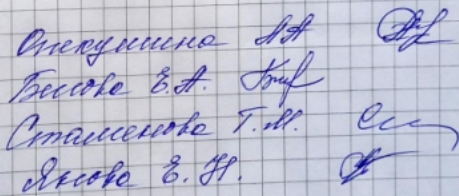 Опекушина АА
Белова Е.А.
Стаменова Т.М.
Янова Е.Н.